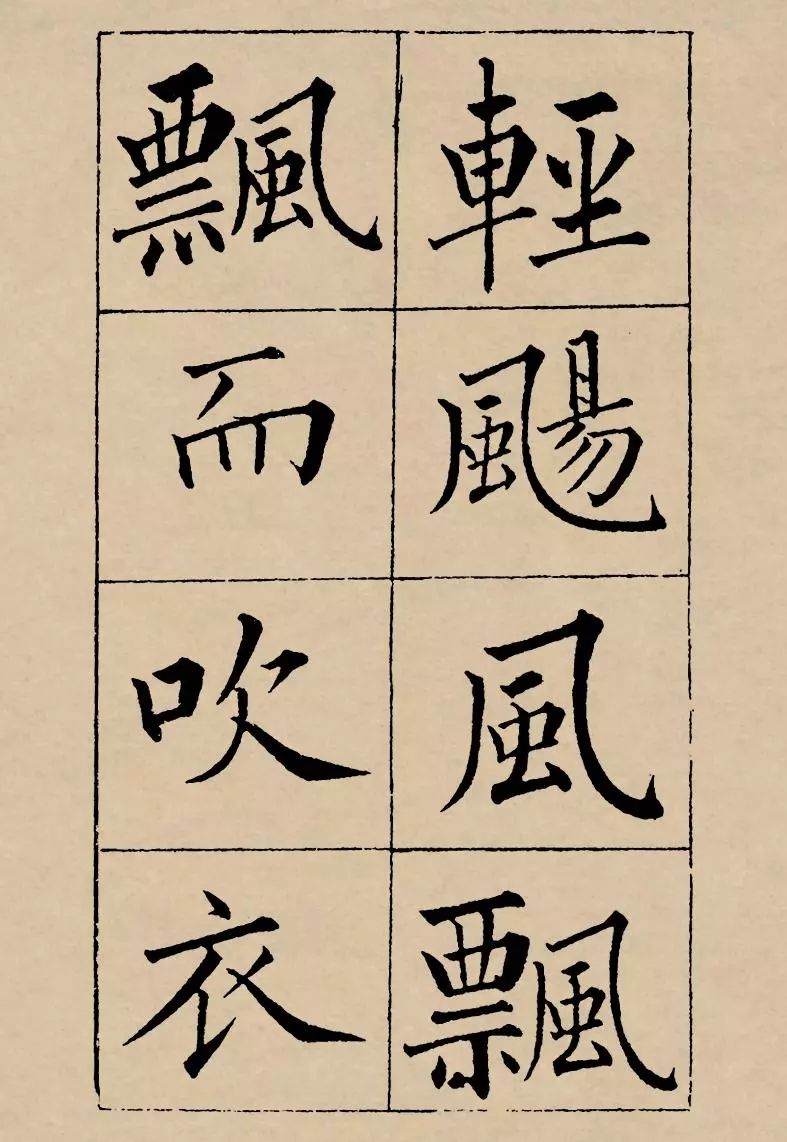 輕颺風飄
飄而吹衣